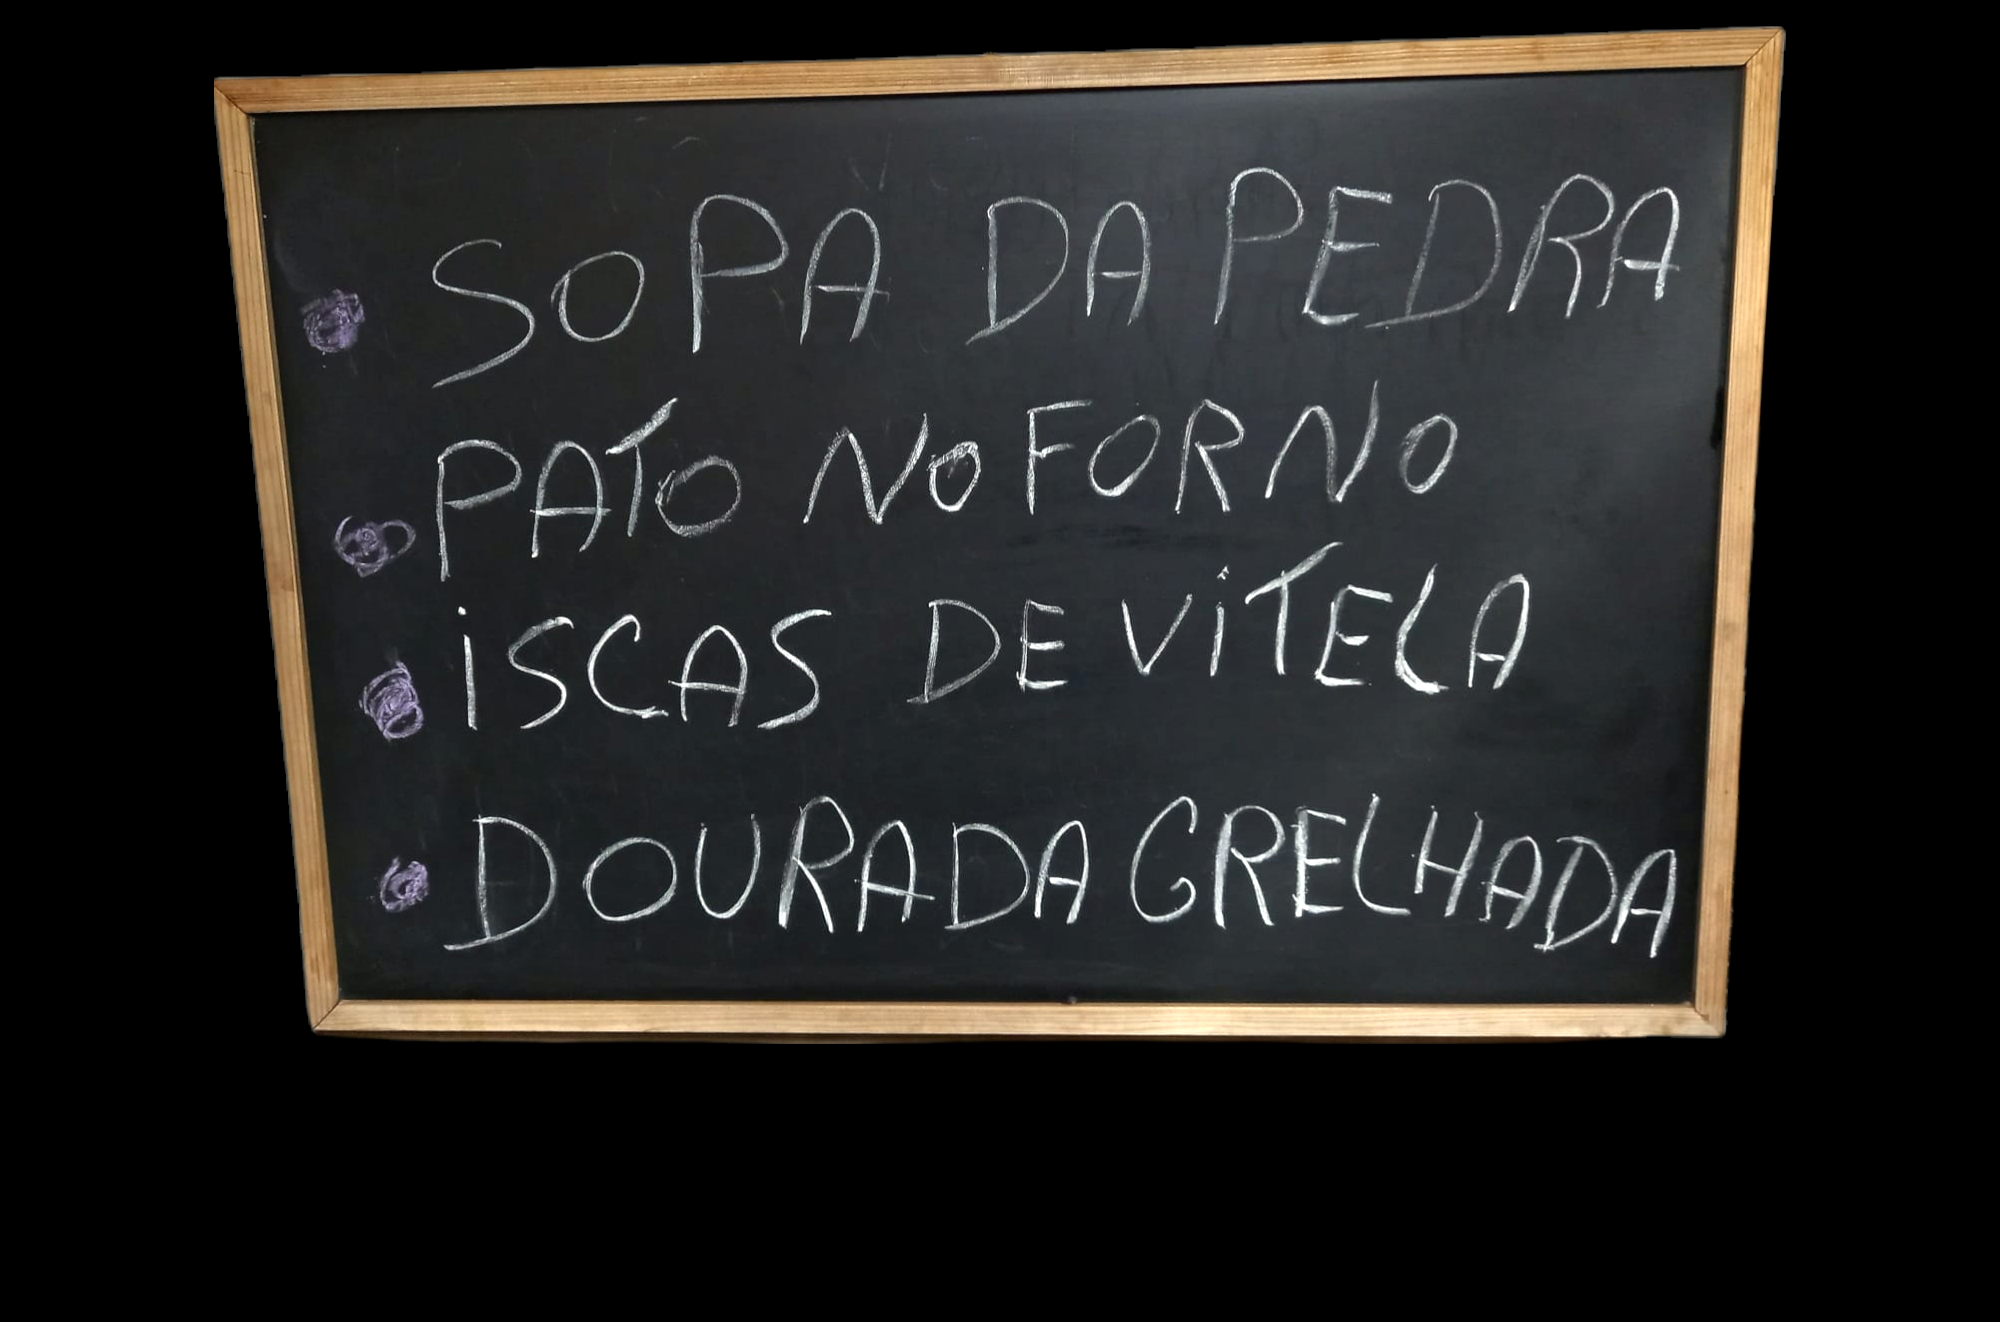 SOPA DA PEDRA
PATO NO FORNO
iSCAS DE ViTELA
DOURADA GRELHADA